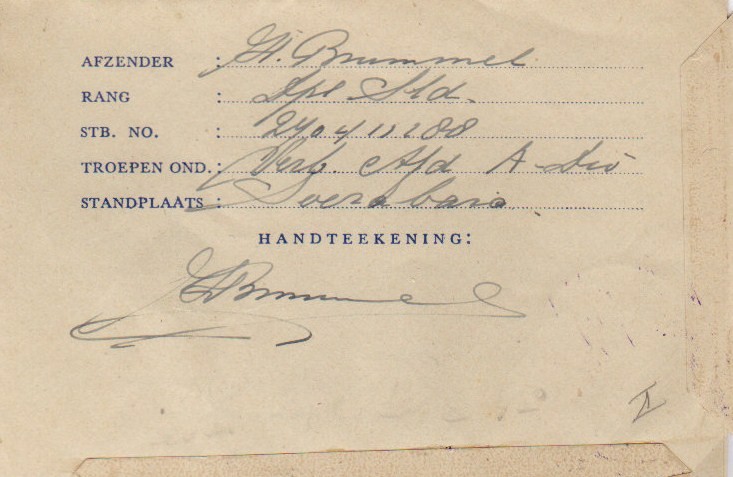 AFZENDER : H. Brummel
RANG : Dpl Sld.
STB. NO. : 270411288
TROEPEN OND. : Verb. Afd A-Div
STANDPLAATS : Soerabaia.
HANDTEEKENING:
HBrummel